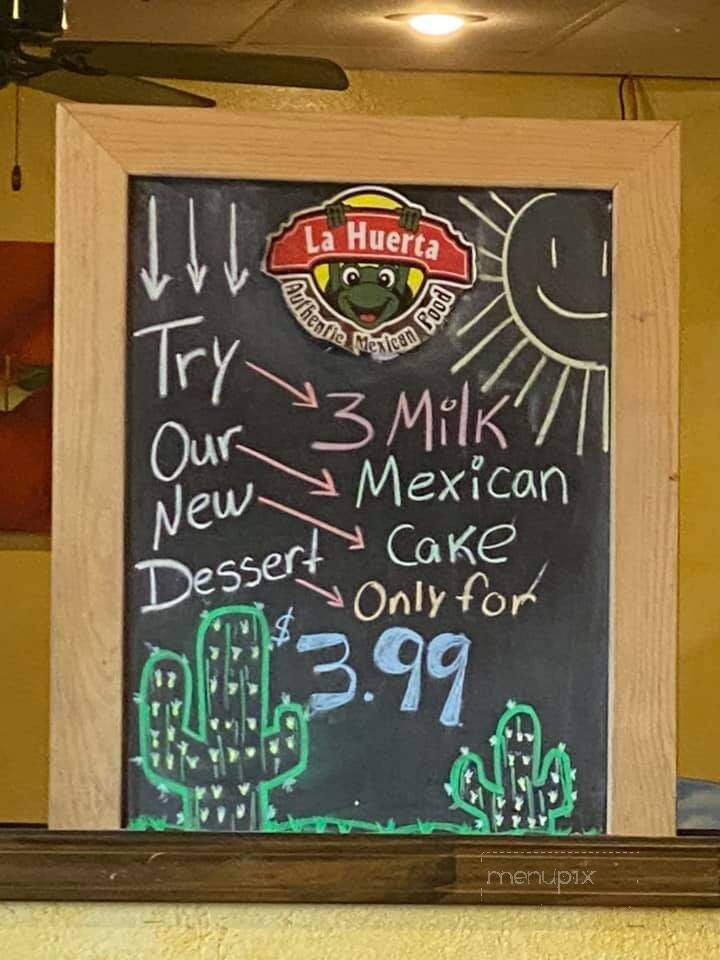 La Huerta
Authentic Mexican Food
Try
Our
New
Dessert
3 Milk
Mexican
Cake
Only for
$3.99
menupix